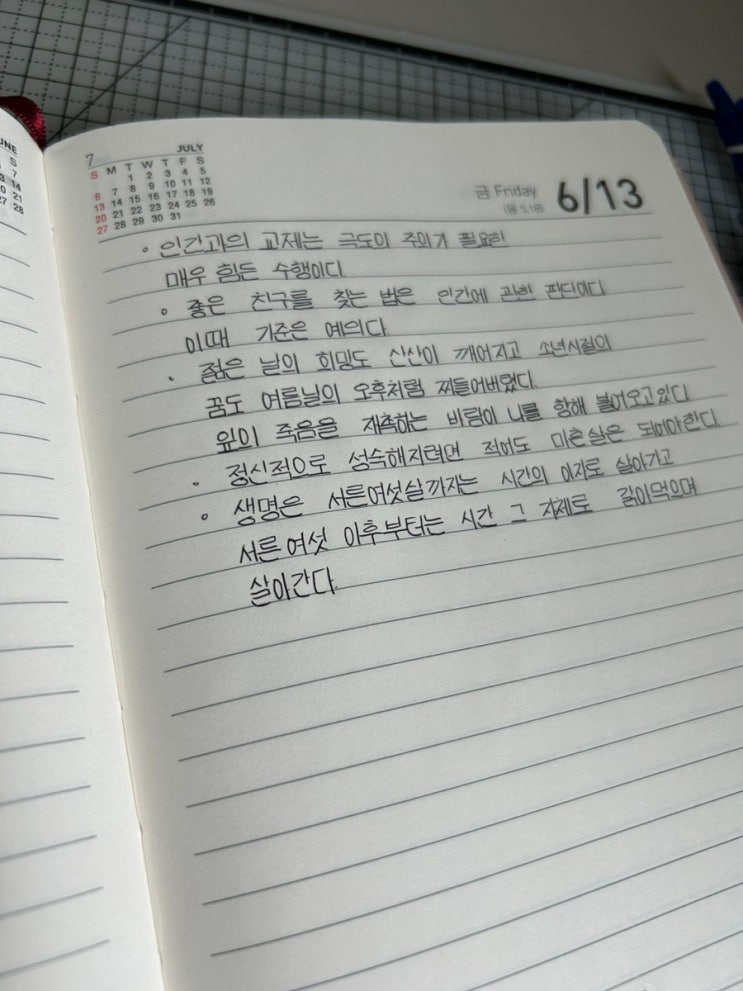 UNE
S
7
14
21
28
7 JULY
S M T W T F S
1 2 3 4 5
6 7 8 9 10 11 12
13 14 15 16 17 18 19
20 21 22 23 24 25 26
27 28 29 30 31
금 Friday 6/13
(음 5.18)
◦ 인간과의 교제는 극도의 주의가 필요한
매우 힘든 수행이다
◦ 좋은 친구를 찾는 법은 인간에 관한 판단이다
이때 기준은 예의다.
· 젊은 날의 희망도 산산이 깨어지고 소년시절의
꿈도 여름날의 오후처럼 찌들어버렸다.
잎의 죽음을 재촉하는 바람이 나를 향해 불어오고있다
· 정신적으로 성숙해지려면 적어도 마흔살은 되어야한다.
◦ 생명은 서른여섯살까지는 시간의 이자로 살아가고
서른여섯 이후부터는 시간 그 자체로 갉아먹으며
살아간다.